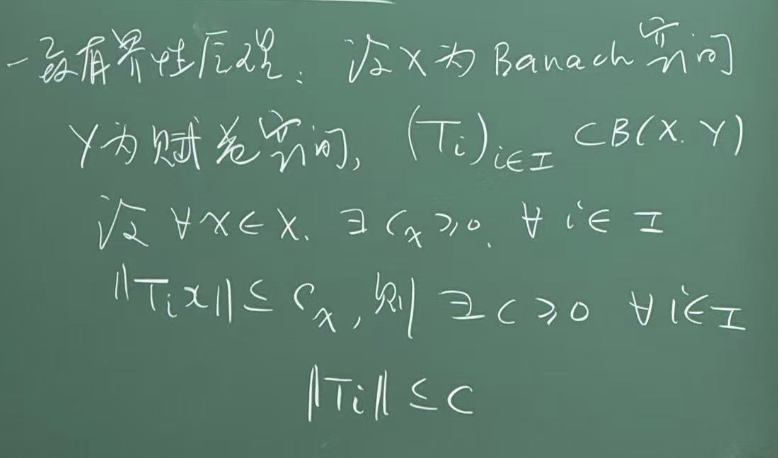 一致有界性原理: 设X为Banach空间
Y为赋范空间, (Tᵢ)_{i∈I} ⊂B(X.Y)
设 ∀x∈X. ∃Cₓ≥0. ∀ i∈ I
‖Tᵢx‖≤Cₓ, 则 ∃C≥0 ∀i∈I
‖Tᵢ‖≤C